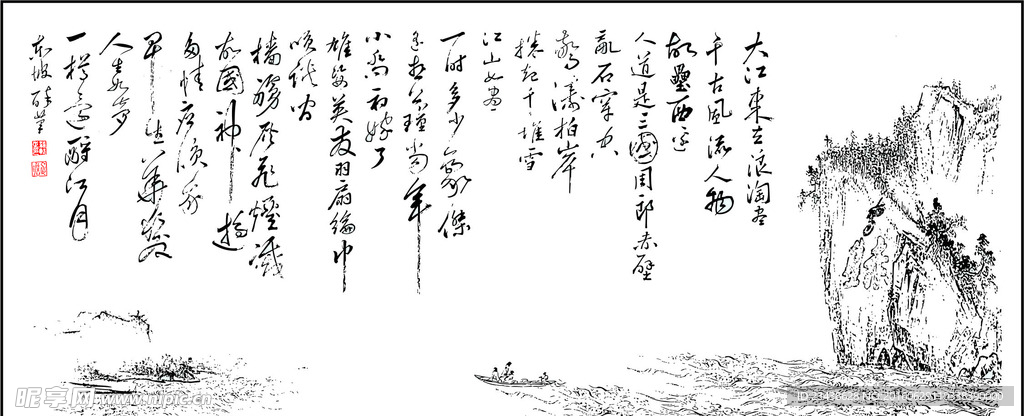 大江東去浪淘盡
千古風流人物
故壘西邊
人道是三國周郎赤壁
亂石穿空
驚濤拍岸
捲起千堆雪
江山如畫
一時多少豪傑
遙想公瑾當年
小喬初嫁了
雄姿英發羽扇綸巾
談笑間
檣櫓灰飛煙滅
故國神遊
多情應笑我
早生華髮
人生如夢
一樽還酹江月
東坡醉筆
赤壁
昵享网 www.nipic.cn